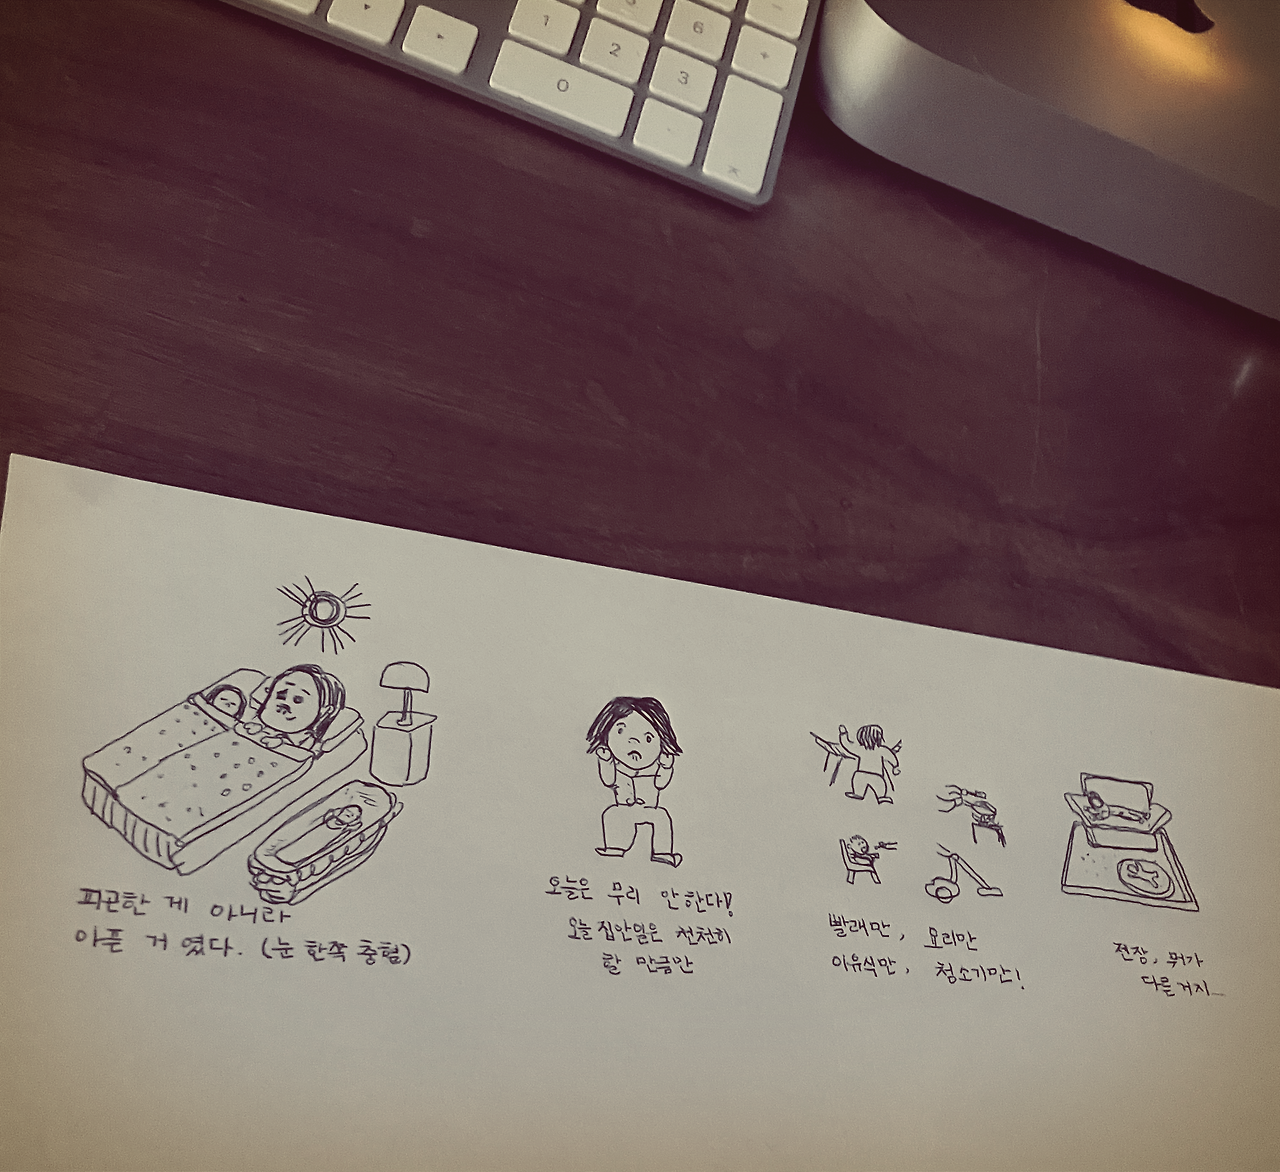 1
2
3
0
6
+
-
피곤한 게 아니라
아픈 거 였다. (눈 한쪽 충혈)
오늘은 무리 안한다!
오늘 집안일은 천천히
할 만큼만
빨래만, 요리만
이유식만, 청소기만!
젠장, 뭐가
다른거지...